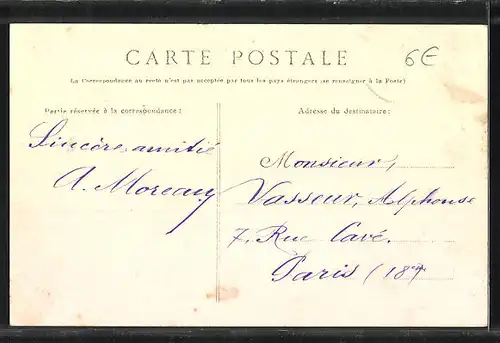 CARTE POSTALE
6€
La Correspondance au recto n'est pas acceptée par tous les pays étrangers (se renseigner à la Poste)
Partie réservée à la correspondance:
Adresse du destinataire:
Sincère amitié
A. Moreau
Monsieur,
Vasseur, Alphonse
7, Rue Cavé.
Paris (18me